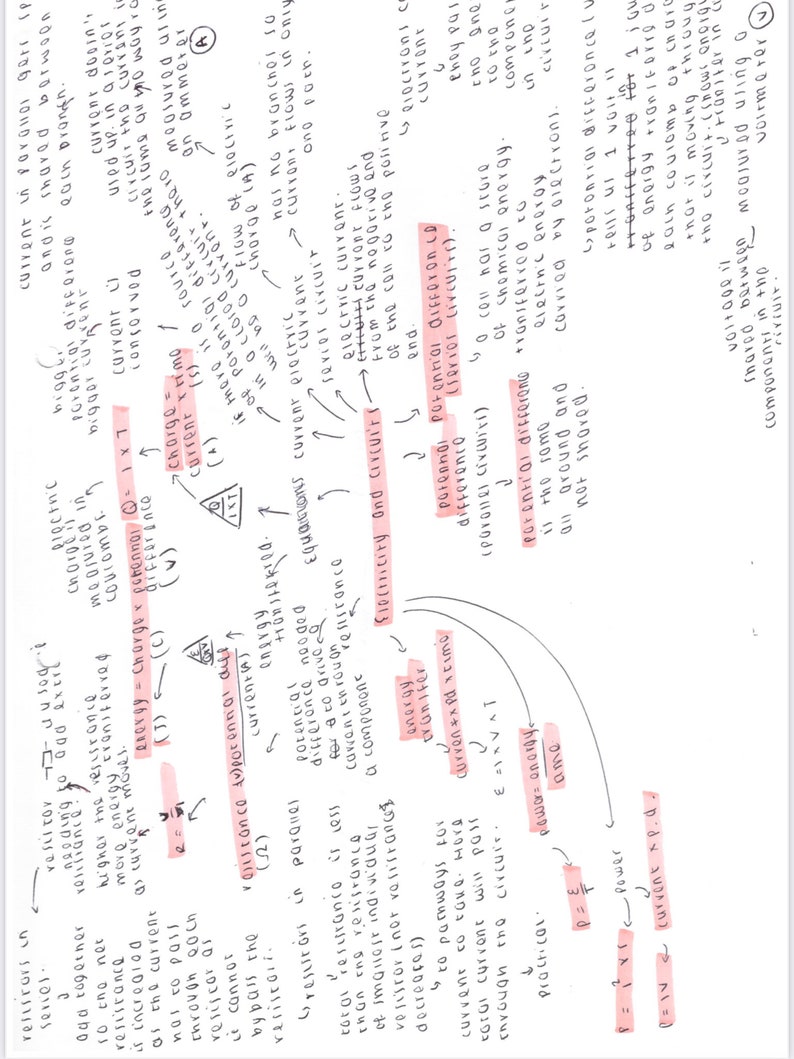 resistors in
series.
add together
so the net
resistance
is increased
as the current
has to pass
through each
resistor as
it cannot
bypass the
resistor.
resistor
needing to add extra
resistance.
higher the resistance
more energy transferred
as current moves.
energy = charge x potential
difference
(J) (C) (V)
resistance = potential diff
current (A)
(Ω)
energy
transferred.
resistors in parallel
total resistance is less
than the resistance
of smallest individual
resistor (net resistance
decreases)
to pathways for
current to take. More
total current will pass
through the circuit.
practical.
potential
difference needed
to drive a
current through
a component
resistance
Equations
electric
charge is
measured in
coulombs.
Q = I x T
charge =
current x time
(A) (S)
Q
I X T
bigger
potential difference
bigger current
current is
conserved
current in parallel gets
and is shared between
each branch.
current doesn't
used up in a series
circuit the current is
the same all the way ro
measured usin
an ammeter
A
if there is a source
of potential difference
in a closed circuit there
will be a current.
flow of electric
charge (A)
current electric
current
series circuit
has no branches so
current flows in only
one path.
electric current.
current flows
from the negative end
of the cell to the positive
end.
Electricity and circuits
potential difference
(series circuit).
a cell has a store
of chemical energy.
transferred to
electric energy
carried by electrons.
electrons c
current
they pas
the ene
to the
componen
in the
circuit
potential
difference
(parallel circuit)
potential difference
is the same
all around and
not shared.
potential difference (V
tells us 1 volt is
transferred for 1 jou
of energy transferred
each coulomb of charg
that is moving throug
the circuit. (shows energ
transfer in c
voltage is
shared between
components in the
circuit.
measured using a
voltmeter
V
energy
transfer
current x pd x time
E = I x V x T
power = energy
time
P = E
T
power
P = I² x
current x p.d.
P = IV